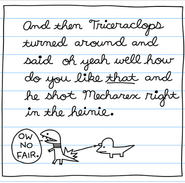 And then Triceraclops
turned around and
said oh yeah well how
do you like that and
he shot Mecharex right
in the heinie.
OW
NO
FAIR.